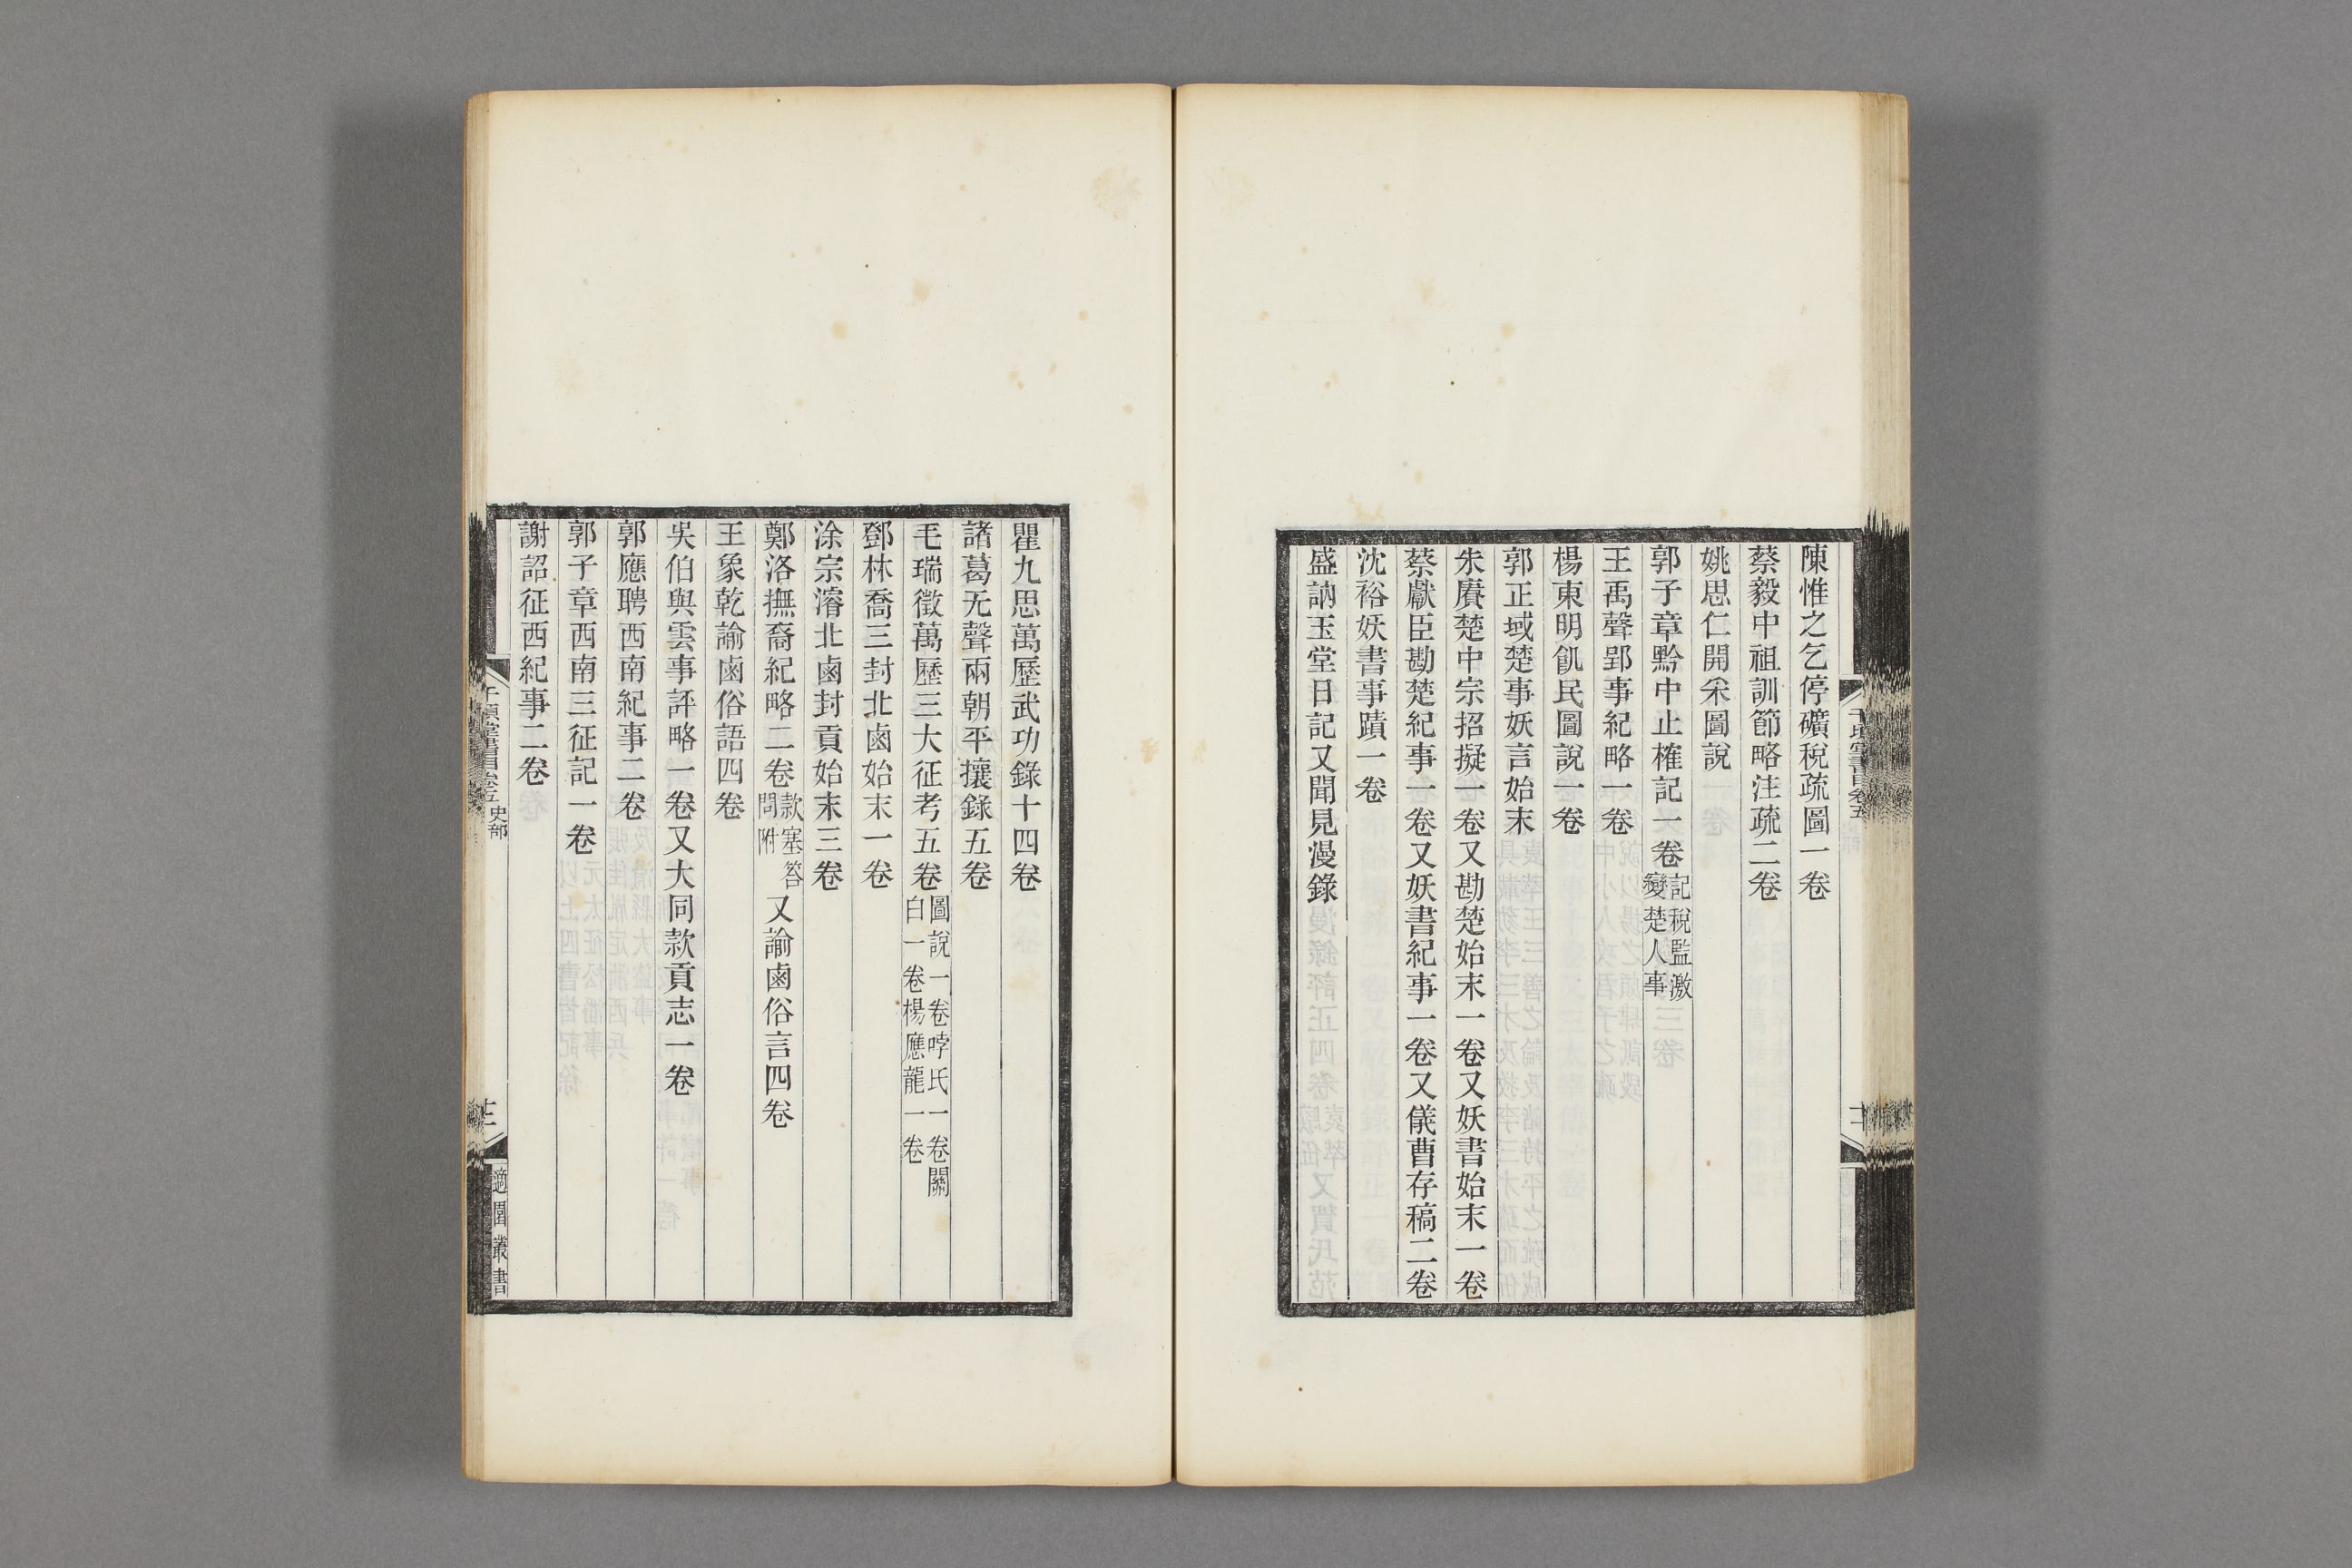 陳惟之乞停礦稅疏圖一卷
蔡毅中祖訓節略注疏二卷
姚思仁開采圖說
郭子章黔中止榷記一卷記稅監激變楚人事
王禹聲郢事紀略一卷
楊東明飢民圖說一卷
郭正域楚事妖言始末
朱賡楚中宗招擬一卷又勘楚始末一卷又妖書始末一卷
蔡獻臣勘楚紀事一卷又妖書紀事一卷又儀曹存稿二卷
沈裕妖書事蹟一卷
盛訥玉堂日記又聞見漫錄
瞿九思萬歷武功錄十四卷
諸葛元聲兩朝平攘錄五卷
毛瑞徵萬歷三大征考五卷圖說一卷哱氏一卷關白一卷楊應龍一卷
鄧林喬三封北鹵始末一卷
涂宗濬北鹵封貢始末三卷
鄭洛撫裔紀略二卷款塞答問附又諭鹵俗言四卷
王象乾諭鹵俗語四卷
吳伯與雲事評略一卷又大同款貢志一卷
郭應聘西南紀事二卷
郭子章西南三征記一卷
謝詔征西紀事二卷
千頃堂書目卷五 史部
適園叢書